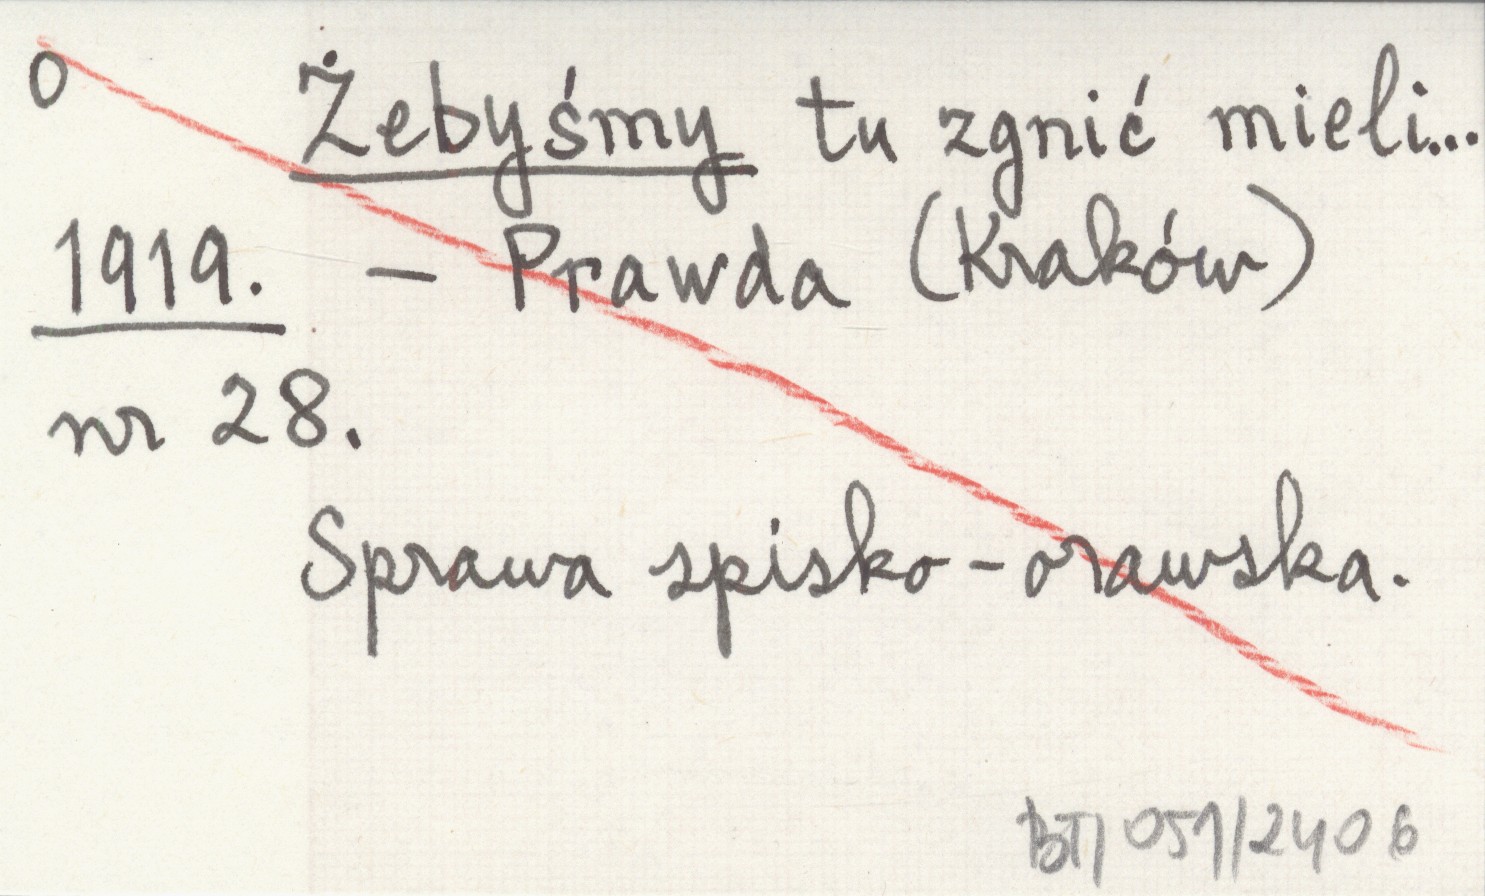 0 Żebyśmy tu zgnić mieli...
1919. – Prawda (Kraków)
nr 28.
Sprawa spisko-orawska.
BT/051/2406